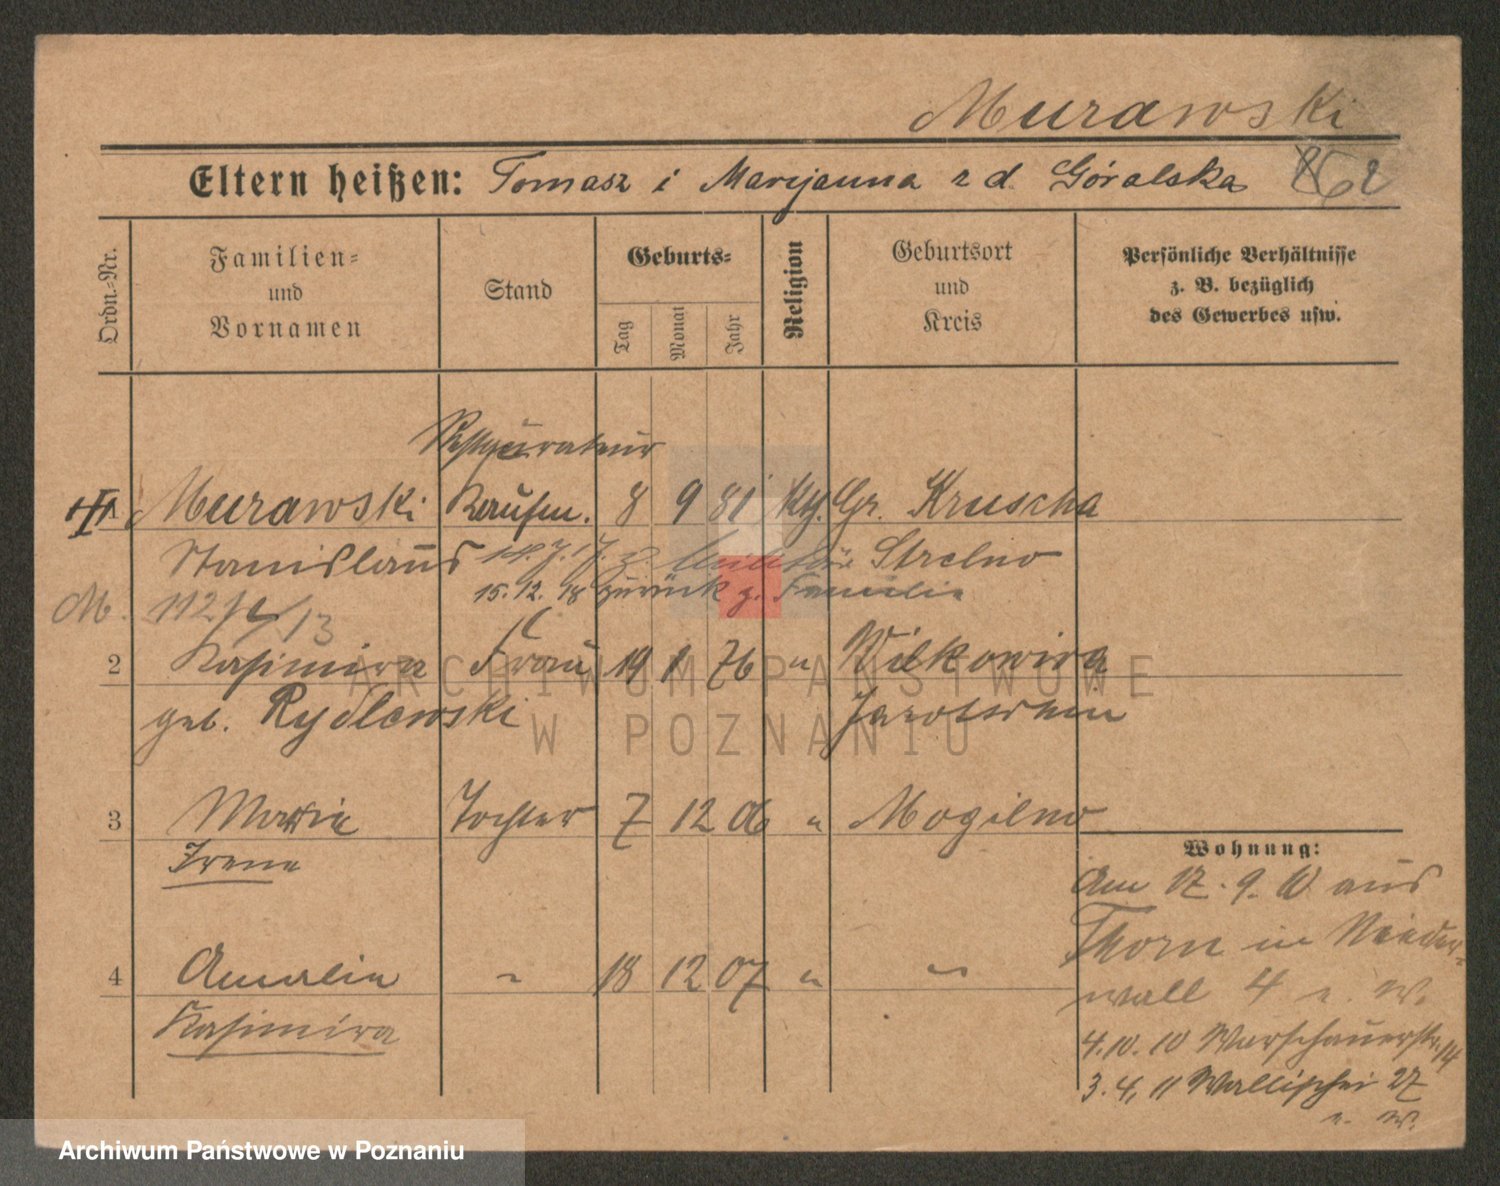 Murawski
Eltern heißen: Tomasz i Maryanna z d. Góralska
Ordn.-Nr.
Familien-
und
Vornamen
Stand
Geburts-
Tag
Monat
Jahr
Religion
Geburtsort
und
Kreis
Persönliche Verhältnisse
z. B. bezüglich
des Gewerbes usw.
Restaurateur
Murawski Kaufm. 8 9 81 kth. Gr. Kruscha
Stanislaus z. Militär Strelno
15. 12. 18 zurück z. Familie
M. 112/13
2 Kasimira Frau 19 1 76 " Wilkowyia
geb. Rydlewski Jarotschin
3 Marie Tochter 7 12 06 " Mogilno
Irene
4 Amalie " 18 12 07 " "
Kasimira
Wohnung:
Am 17. 9. 10 aus
Thorn in Nieder-
wall 4 n. W.
4.10.10 Warschauerstr. 14
3.4.11 Wallischei 27
n. W.
ARCHIWUM PAŃSTWOWE
W POZNANIU
Archiwum Państwowe w Poznaniu